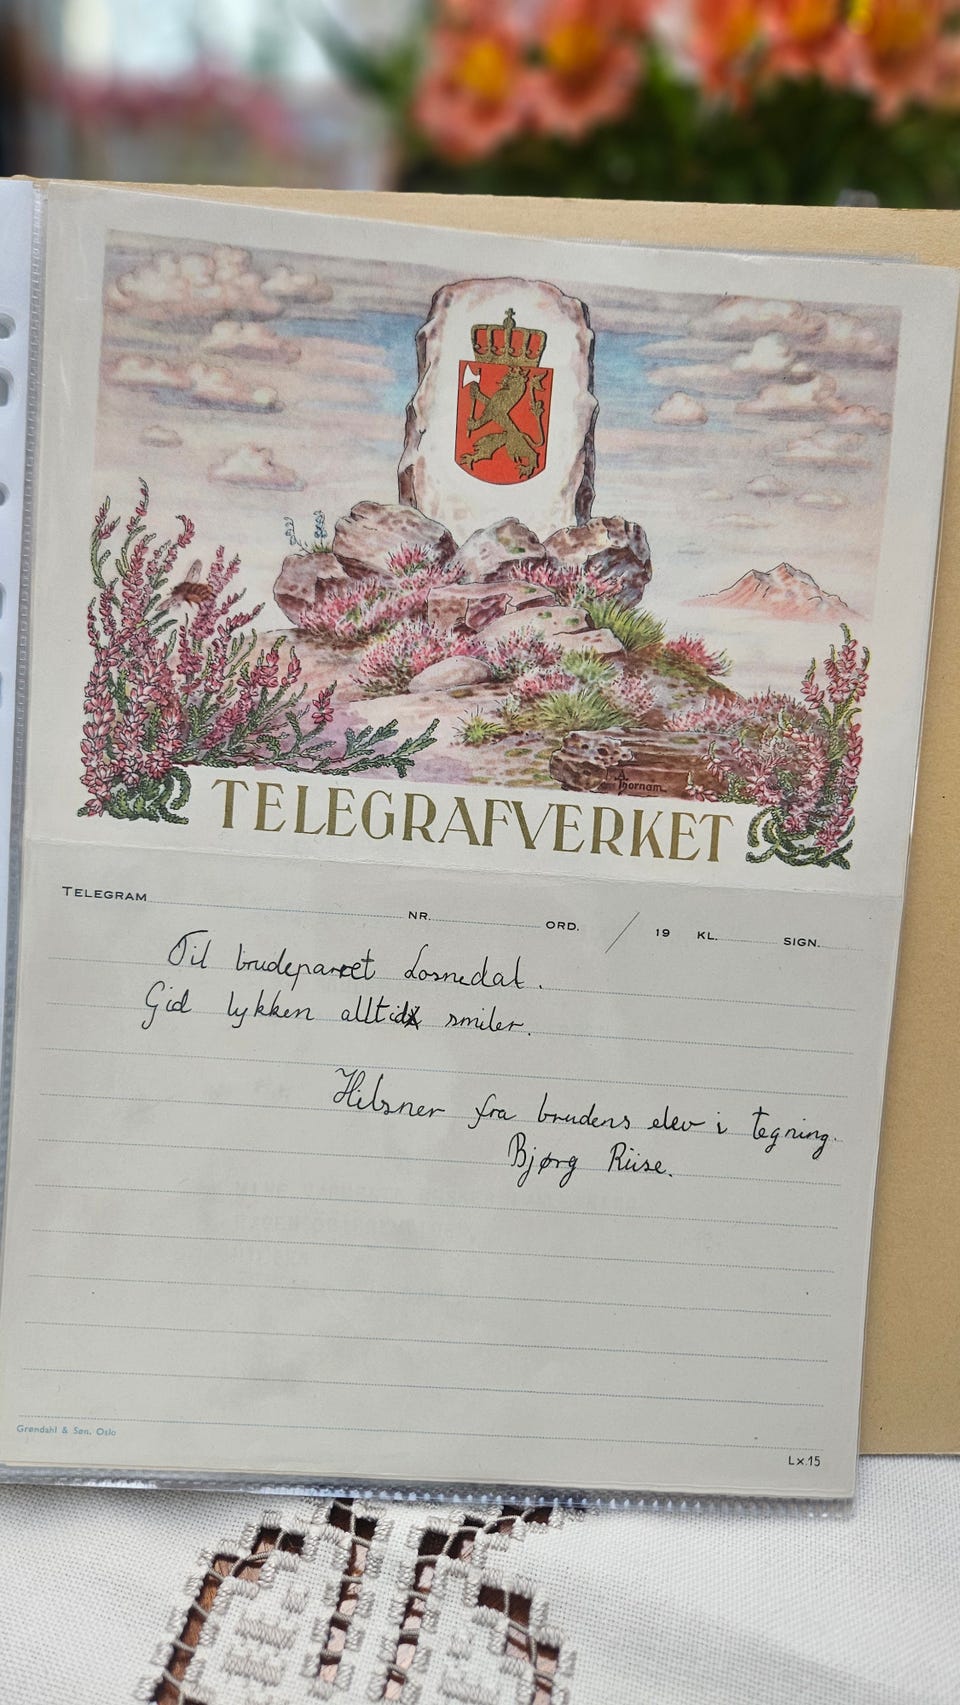 A. Thornam
TELEGRAFVERKET
TELEGRAM NR. ORD. / 19 KL. SIGN.
Til brudeparret Losnedal.
Gid lykken alltid smiler.
Hilsner fra brudens elev i tegning.
Bjørg Riise.
Grøndahl & Søn, Oslo
Lx.15